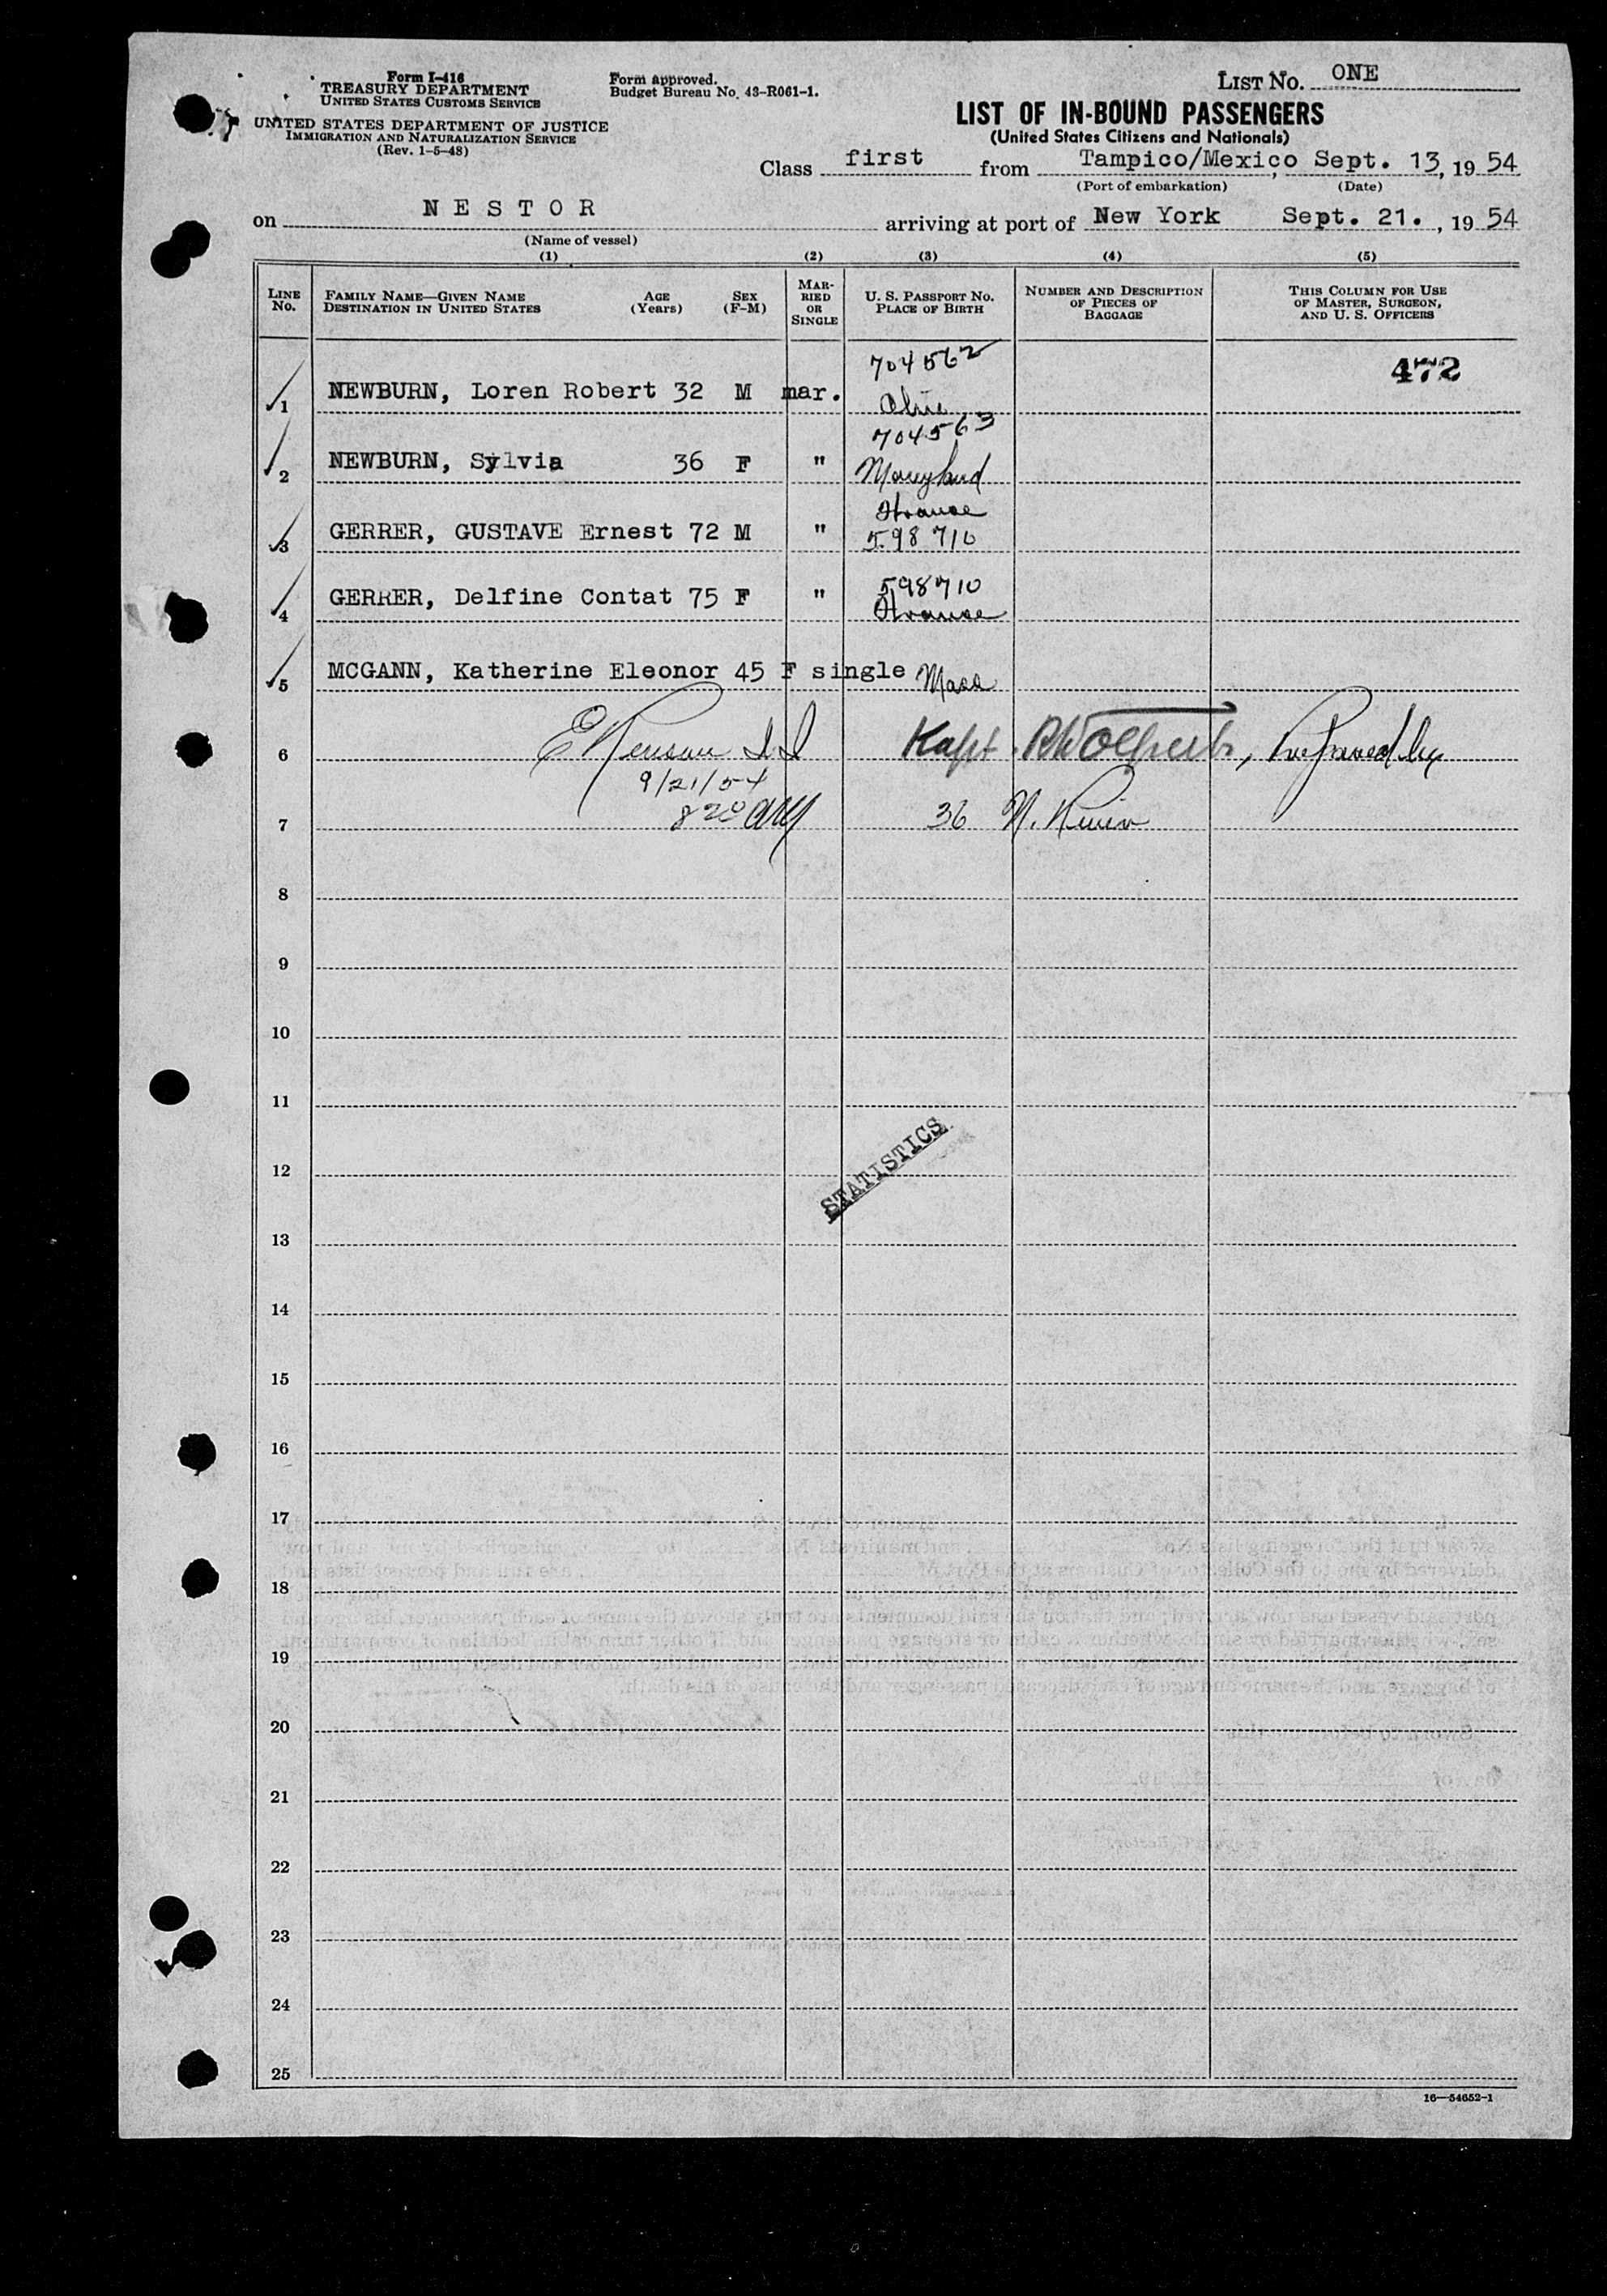 Form I-416
TREASURY DEPARTMENT
UNITED STATES CUSTOMS SERVICE
UNITED STATES DEPARTMENT OF JUSTICE
IMMIGRATION AND NATURALIZATION SERVICE
(Rev. 1-5-48)
Form Approved.
Budget Bureau No. 43-R061-1.
LIST No. ONE
LIST OF IN-BOUND PASSENGERS
(United States Citizens and Nationals)
Class first from Tampico/Mexico, Sept. 13, 19 54
(Port of embarkation) (Date)
on NESTOR arriving at port of New York Sept. 21. , 19 54
(Name of vessel)
(1) (2) (3) (4) (5)
LINE No.
FAMILY NAME—GIVEN NAME
DESTINATION IN UNITED STATES
AGE (Years)
SEX (F-M)
MARRIED OR SINGLE
U. S. PASSPORT No.
PLACE OF BIRTH
NUMBER AND DESCRIPTION OF PIECES OF BAGGAGE
THIS COLUMN FOR USE OF MASTER, SURGEON, AND U. S. OFFICERS
704562 472
1 NEWBURN, Loren Robert 32 M mar.
704563
2 NEWBURN, Sylvia 36 F " Maryland
France
3 GERRER, GUSTAVE Ernest 72 M " 598710
598710
4 GERRER, Delfine Contat 75 F " France
5 MCGANN, Katherine Eleonor 45 F single Mass
6 Kapt.
9/21/54
7 820 36 N. River
8
9
10
11
STATISTICS
12
13
14
15
16
17
18
19
20
21
22
23
24
25
16—54652-1